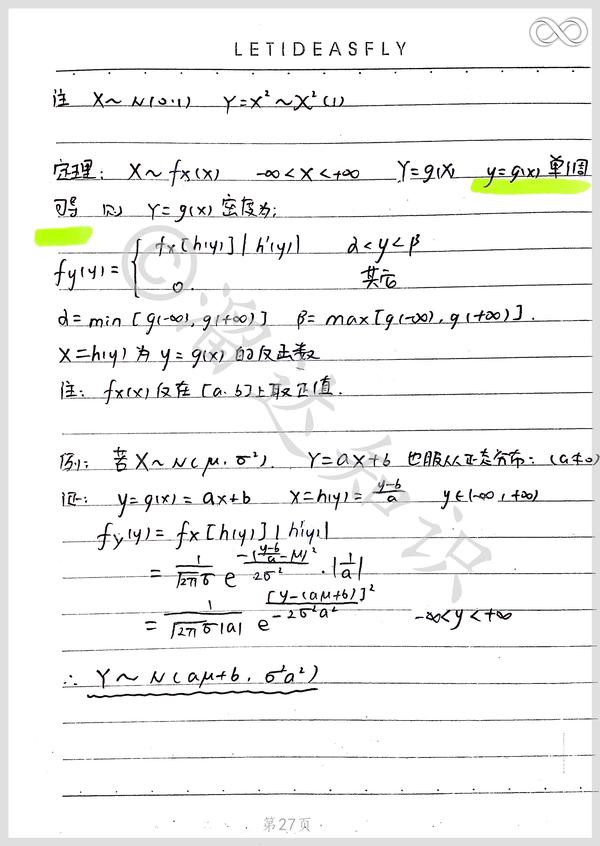 LETIDEASFLY
注 X~N(0.1) Y=X²~χ²(1)
定理: X~fx(x) -∞<x<+∞ Y=g(X) y=g(x) 单调
可导 则 Y=g(x) 密度为:
fy(y)= { fx[h(y)]|h'(y)| α<y<β
0. 其它
α=min[g(-∞),g(+∞)] β=max[g(-∞),g(+∞)].
x=h(y)为y=g(x)的反函数
注: fx(x)仅在[a.b]上取正值.
例: 若X~N(μ.σ²). Y=ax+b 也服从正态分布: (a≠0)
证: y=g(x)=ax+b x=h(y)=(y-b)/a y∈(-∞,+∞)
fy(y)=fx[h(y)]|h'(y)|
= 1/(√2π σ) e^(-((y-b)/a-μ)²/2σ²)·|1/a|
= 1/(√2π σ|a|) e^([y-(aμ+b)]²/-2σ²a²) -∞<y<+∞
∴ Y~N(aμ+b, σ²a²)
第27页
©溜达知识